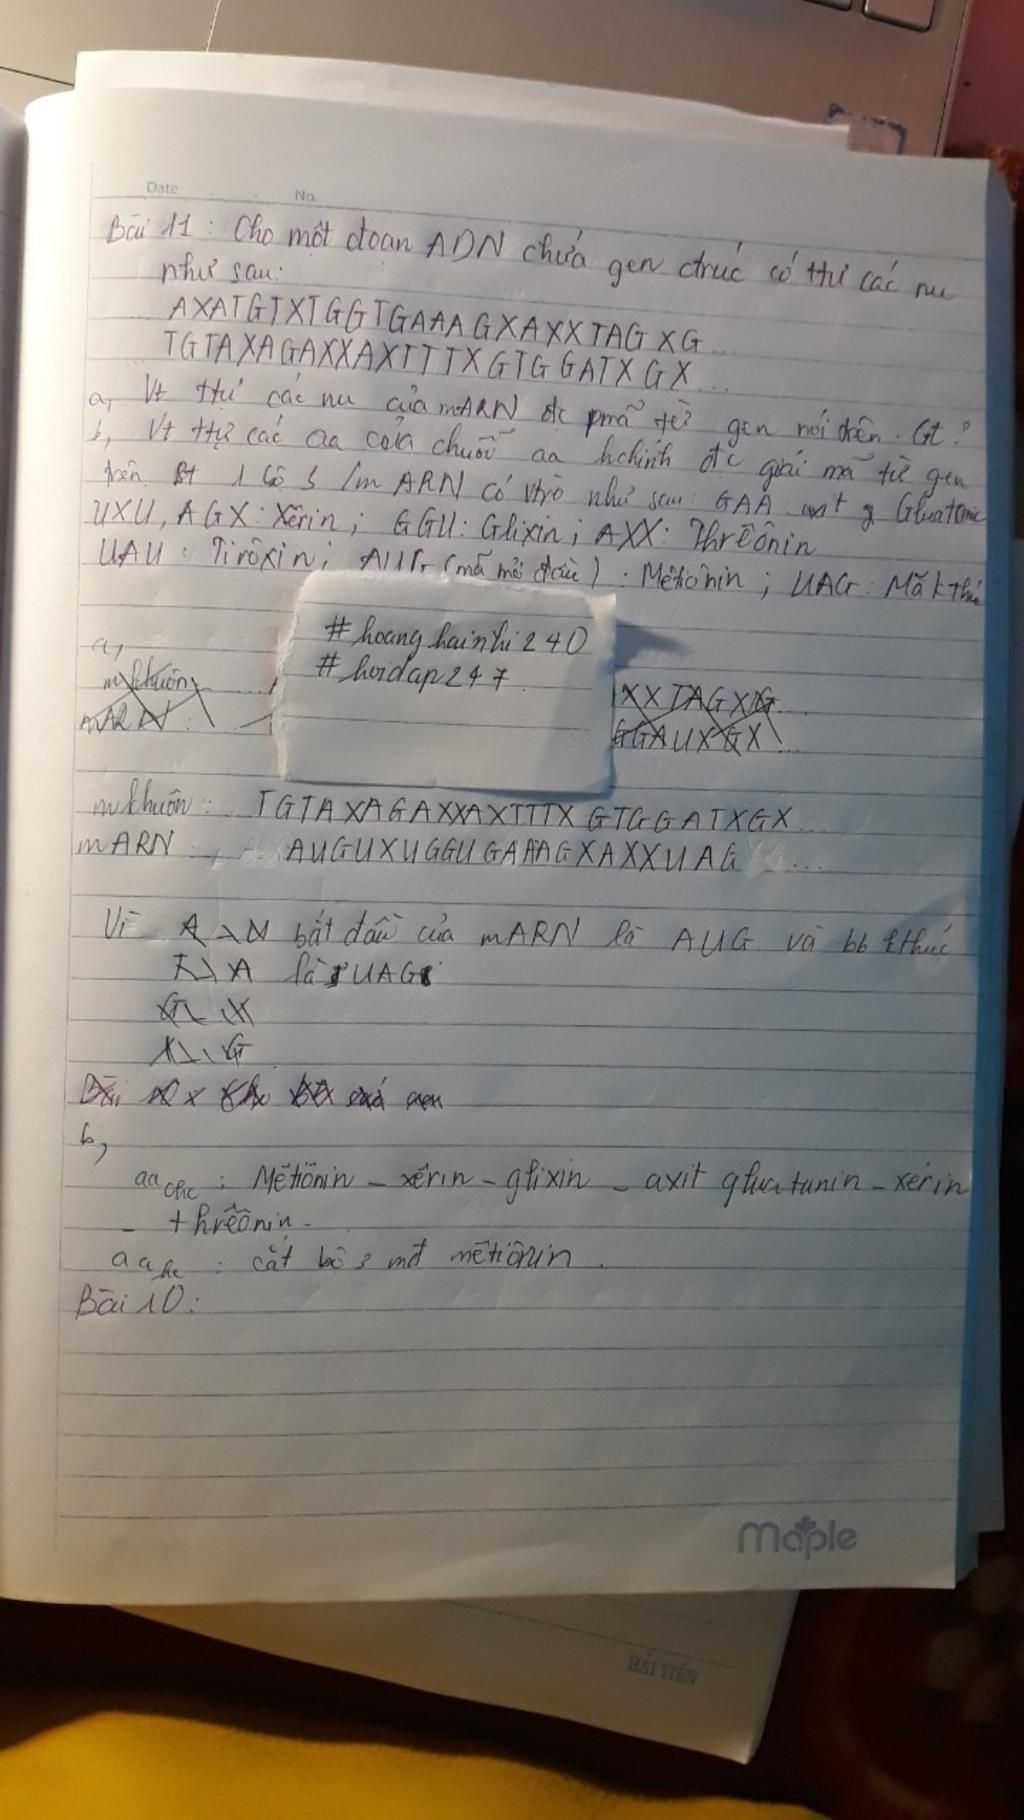 Date No.
Bài 11: Cho một đoạn ADN chứa gen ctrúc có ttự các nu
như sau:
AXATGTXTGGTGAAAGXAXXTAGXG...
TGTAXAGAXXAXTTTXGTGGATXGX...
a, Vt ttự các nu của mARN đc pmã từ gen nói trên. Gt?
b, Vt ttự các aa của chuỗi aa hchỉnh đc giải mã từ gen
trên. Bt 1 số bộ 3 /mARN có vtrò như sau: GAA: axit g
UXU, AGX: Xêrin; GGU: Glixin; AXX: Thrêônin
UAU: Tirôxin; AUG (mã mở đầu): Mêtiônin; UAG: Mã kthúc
#hoanghainhi240
#hoidap247
a,
mkhuôn
mARN:
XXTAGXG
GGAUXGX...
mkhuôn: TGTAXAGAXXAXTTTXGTGGATXGX...
mARN: AUGUXUGGUGAAAGXAXXUAG ...
Vì bắt đầu của mARN là AUG và bb kthúc
là UAG
b,
aa chc: Mêtiônin - xêrin - glixin - axit gluatunin - xêrin
- thrêônin -
aa hc: cắt bỏ mđ mêtiônin.
Bài 10:
Maple
HẢI TIẾN